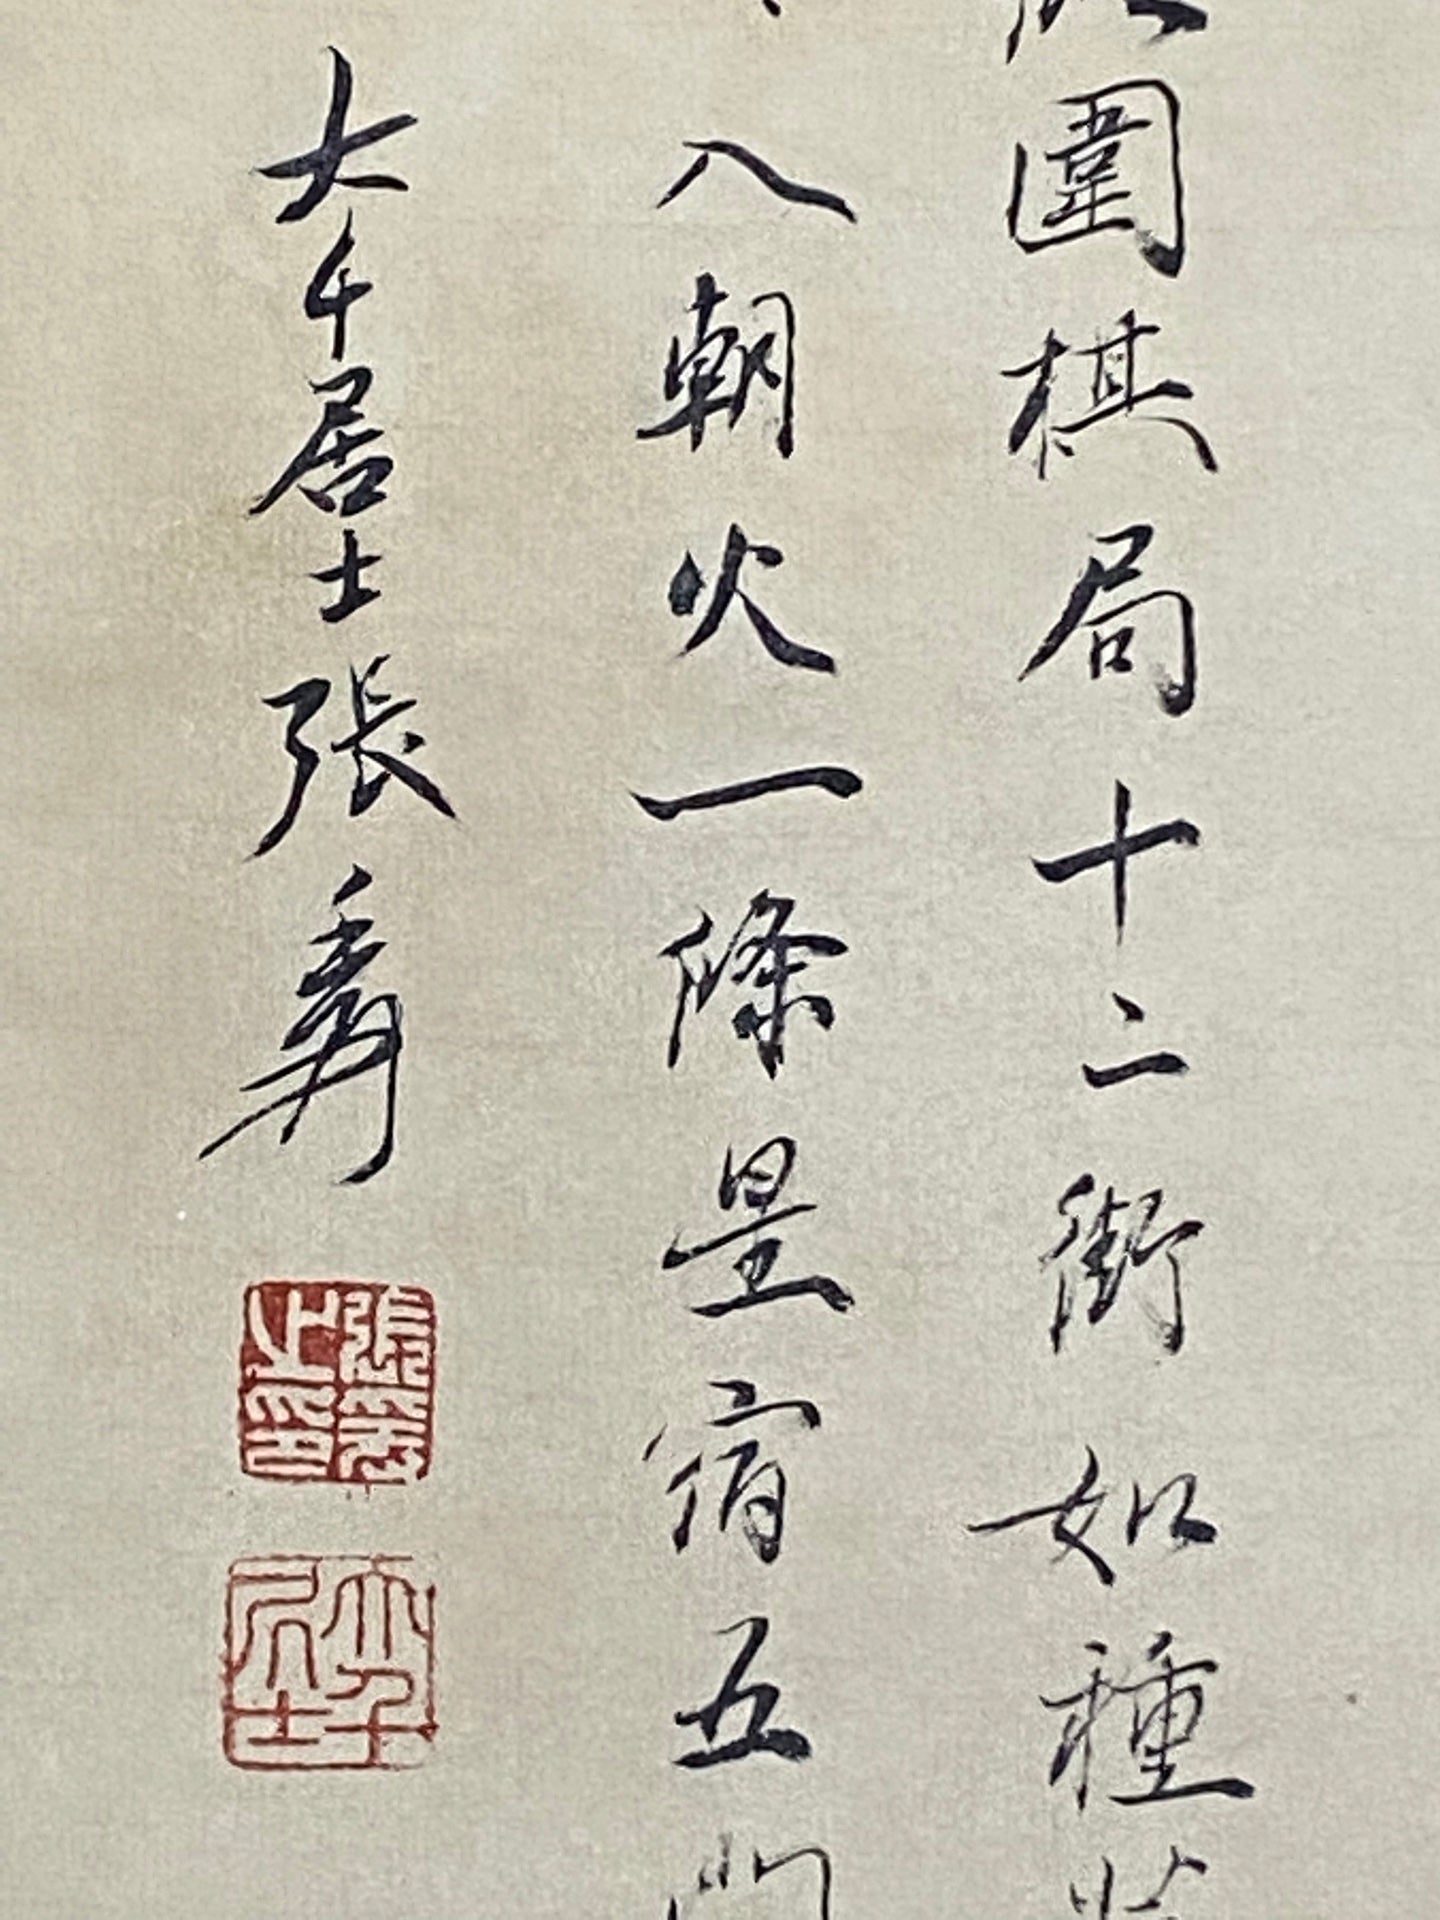 圍棋局十二街如種
入朝火一條星宿五門
大千居士張爰
張爰之印
大千居士